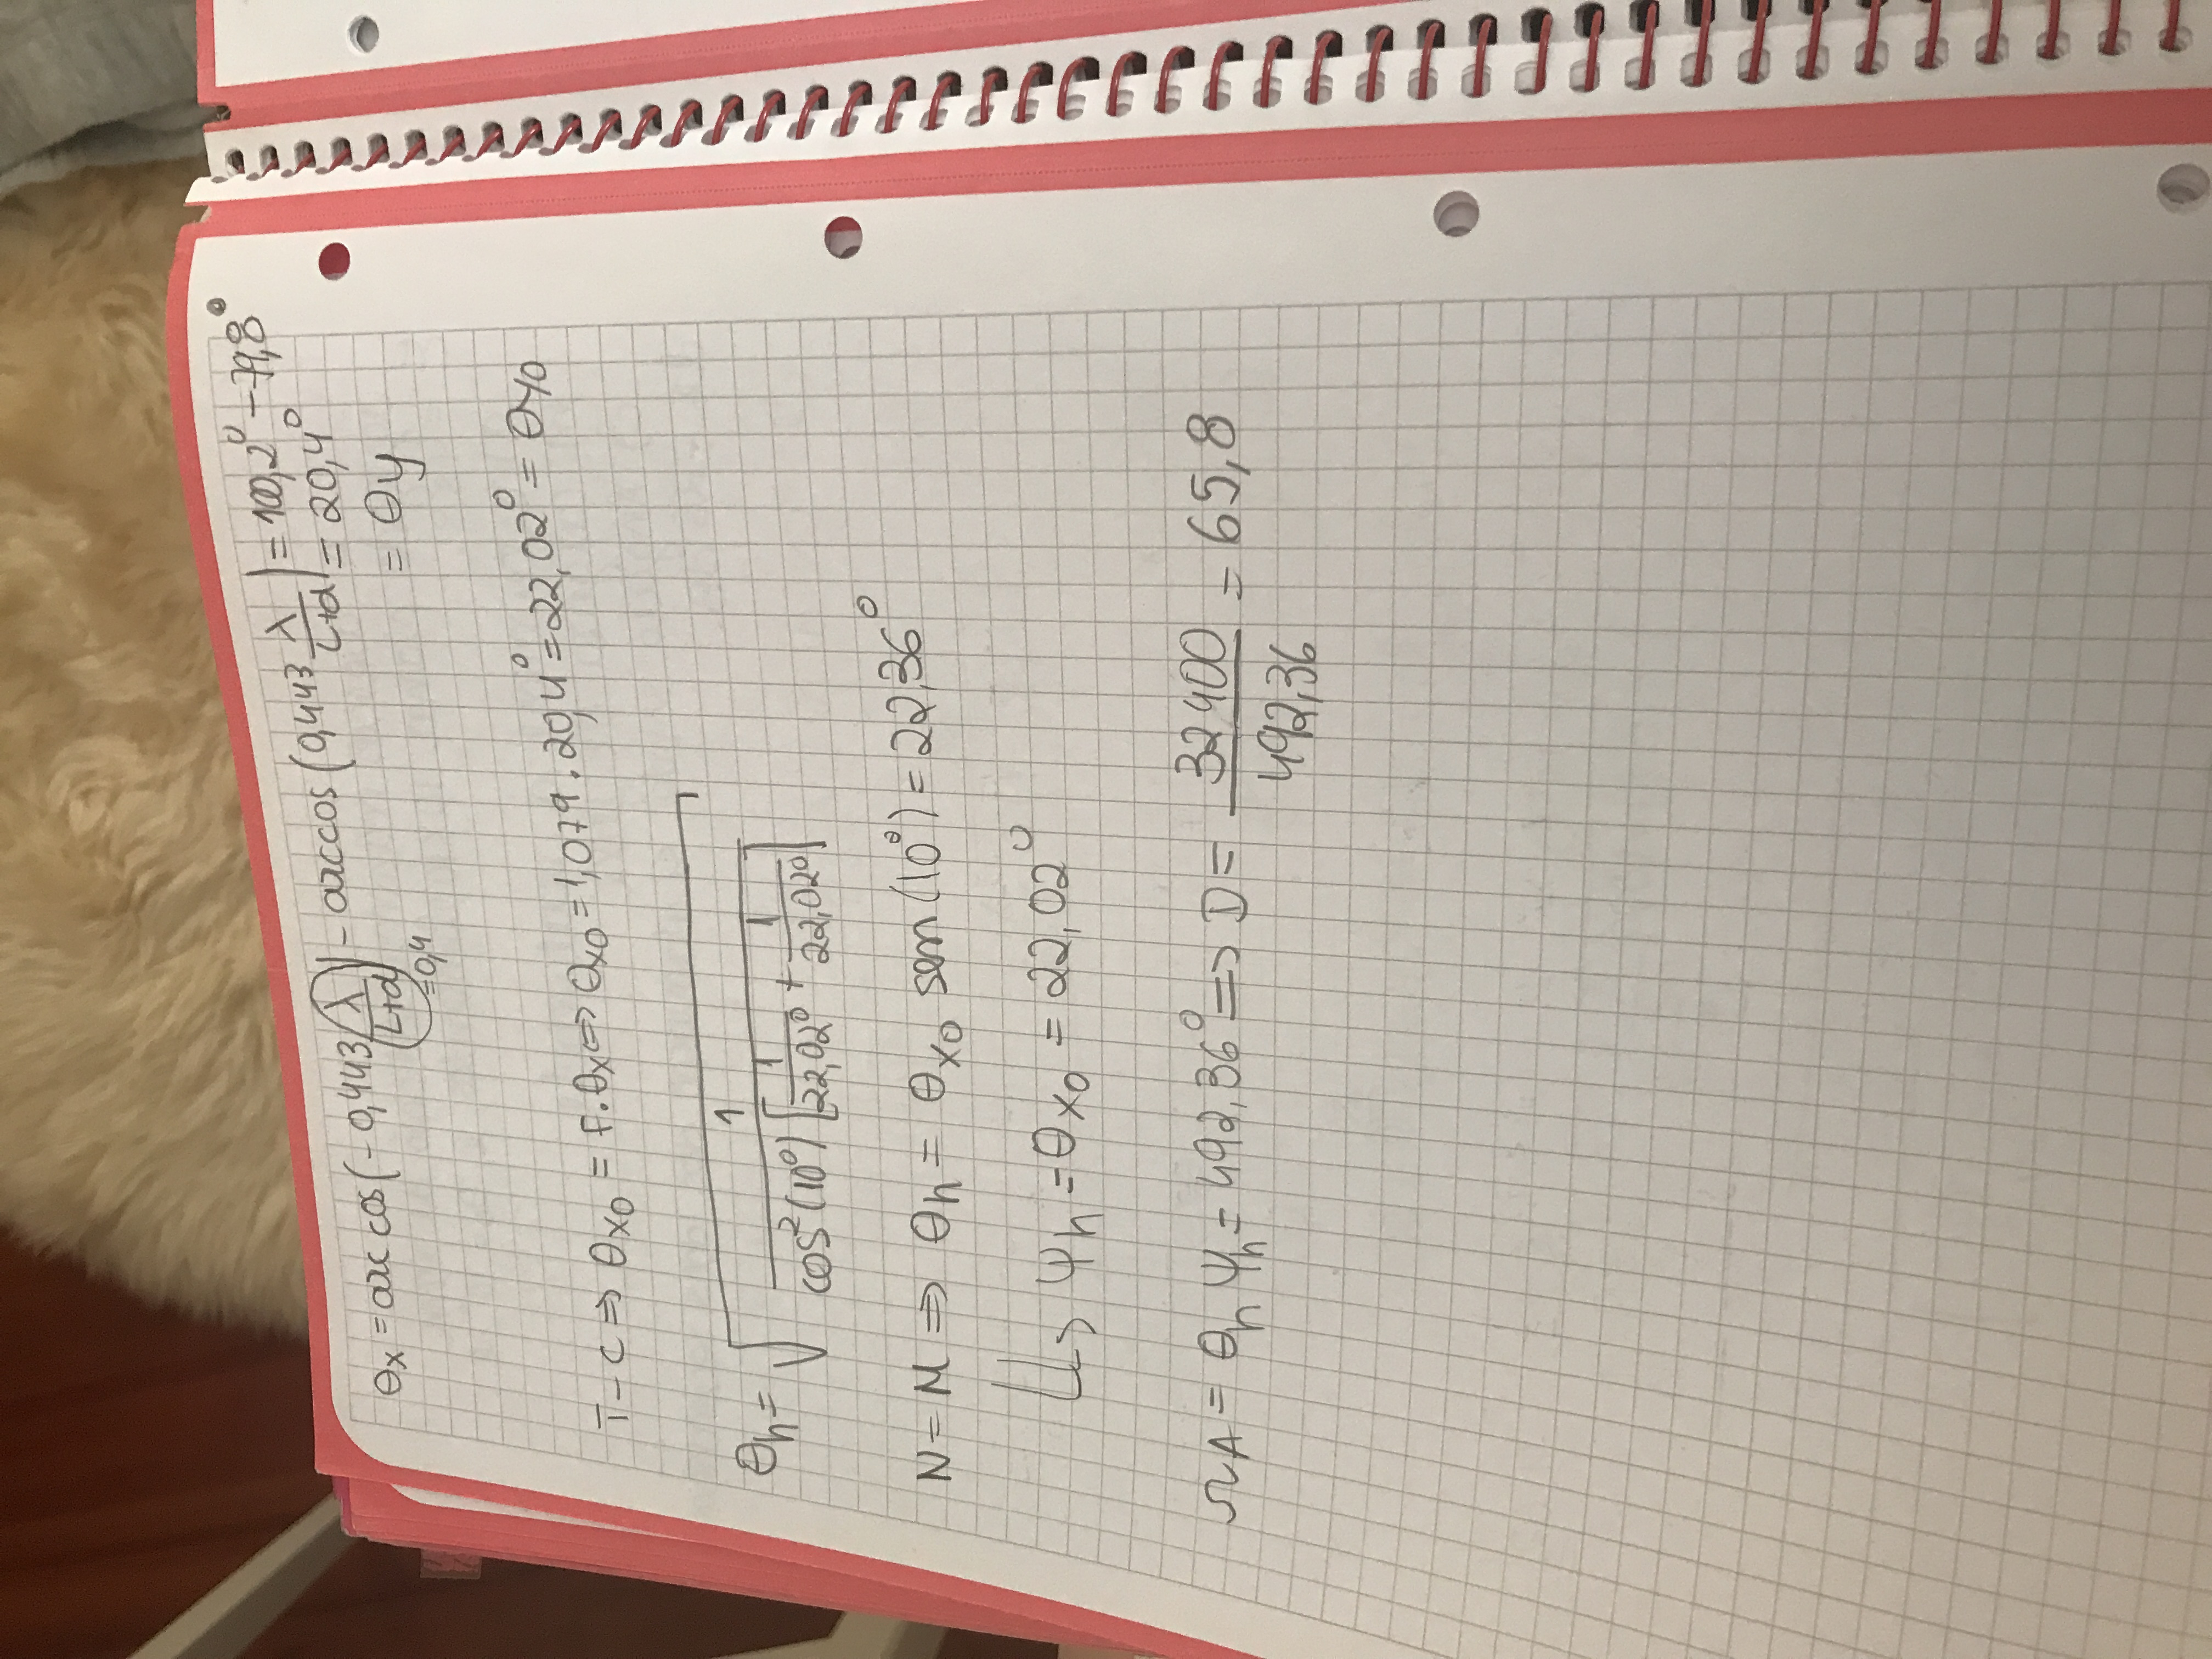 θx = arc cos(-0,443 λ/(L+d)) - arccos(0,443 λ/(L+d)) = 100,2° - 79,8°
=0,4
= 20,4°
= θy
T-C ⇒ θxo = f.θx ⇔ θxo = 1,079 . 20,4° = 22,02° = θyo
θh = √(1/(cos²(10°) [1/22,02° + 1/22,02°]))
N = M ⇒ θh = θxo sen(10°) = 22,36°
↳ Ψh = θxo = 22,02°
ΩA = θh Ψh = 492,36° ⇒ D = 32400/492,36 = 65,8